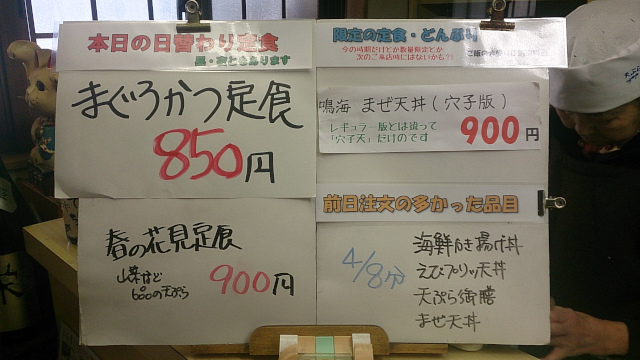 本日の日替わり定食
昼・夜ともあります
まぐろかつ定食
850円
春の花見定食
山菜など
900円
限定の定食・どんぶり
今の時期だけとか数量限定とか
次のご来店時にはないかも?!
鳴海 まぜ天丼(穴子版)
レギュラー版とは違って
「穴子天」だけのです
900円
前日注文の多かった品目
4/8分
海鮮かき揚げ丼
えびプリッ天丼
天ぷら御膳
まぜ天丼